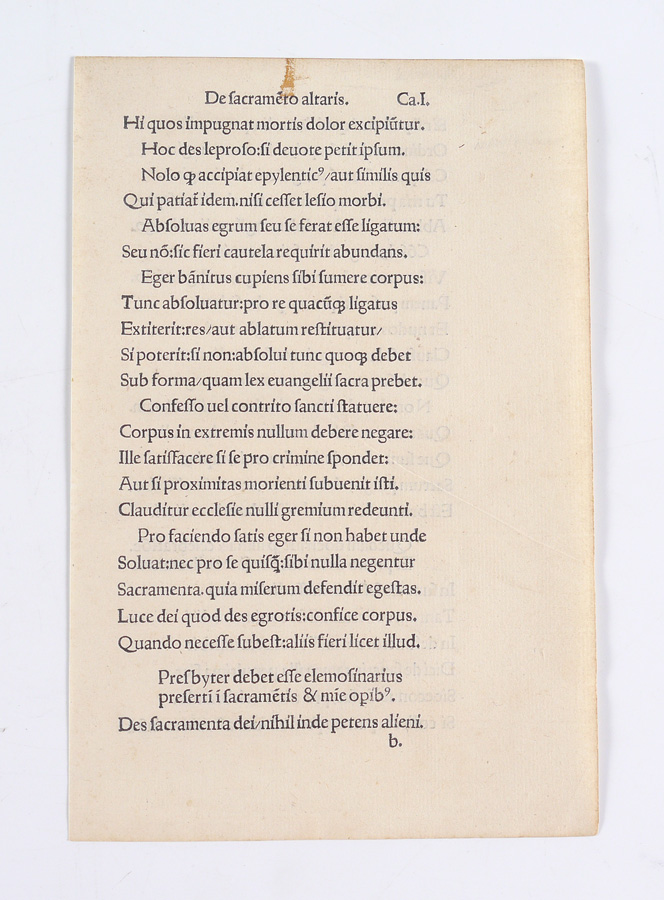 De ſacramēto altaris. Ca.I.
Hi quos impugnat mortis dolor excipiūtur.
Hoc des leproſo:ſi deuote petit ipſum.
Nolo ꝙ accipiat epylenticꝰ/aut ſimilis quis
Qui patiat᷑ idem.niſi ceſſet leſio morbi.
Abſoluas egrum ſeu ſe ferat eſſe ligatum:
Seu nō:ſic fieri cautela requirit abundans.
Eger bānitus cupiens ſibi ſumere corpus:
Tunc abſoluatur:pro re quacūqꝫ ligatus
Extiterit:res/aut ablatum reſtituatur/
Si poterit:ſi non:abſolui tunc quoqꝫ debet
Sub forma/quam lex euangelii ſacra prebet.
Confeſſo uel contrito ſancti ſtatuere:
Corpus in extremis nullum debere negare:
Ille ſatiſfacere ſi ſe pro crimine ſpondet:
Aut ſi proximitas morienti ſubuenit iſti.
Clauditur eccleſie nulli gremium redeunti.
Pro faciendo ſatis eger ſi non habet unde
Soluat:nec pro ſe quiſq̄:ſibi nulla negentur
Sacramenta.quia miſerum defendit egeſtas.
Luce dei quod des egrotis:confice corpus.
Quando neceſſe ſubeſt:aliis fieri licet illud.
Preſbyter debet eſſe elemoſinarius
preſerti ī ſacramētis & mīe opibꝰ.
Des ſacramenta dei/nihil inde petens alieni.
b.